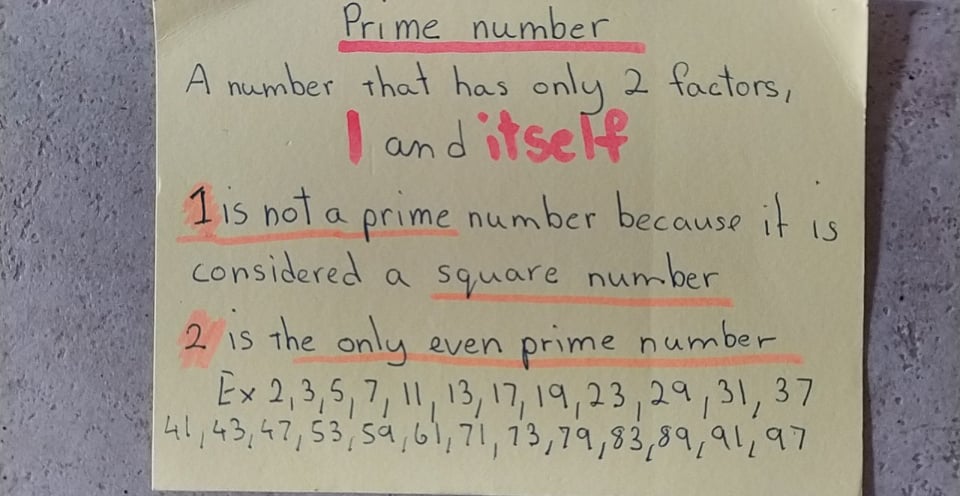 Prime number
A number that has only 2 factors,
1 and itself
1 is not a prime number because it is
considered a square number
2 is the only even prime number
Ex 2, 3, 5, 7, 11, 13, 17, 19, 23, 29, 31, 37
41, 43, 47, 53, 59, 61, 71, 73, 79, 83, 89, 91, 97